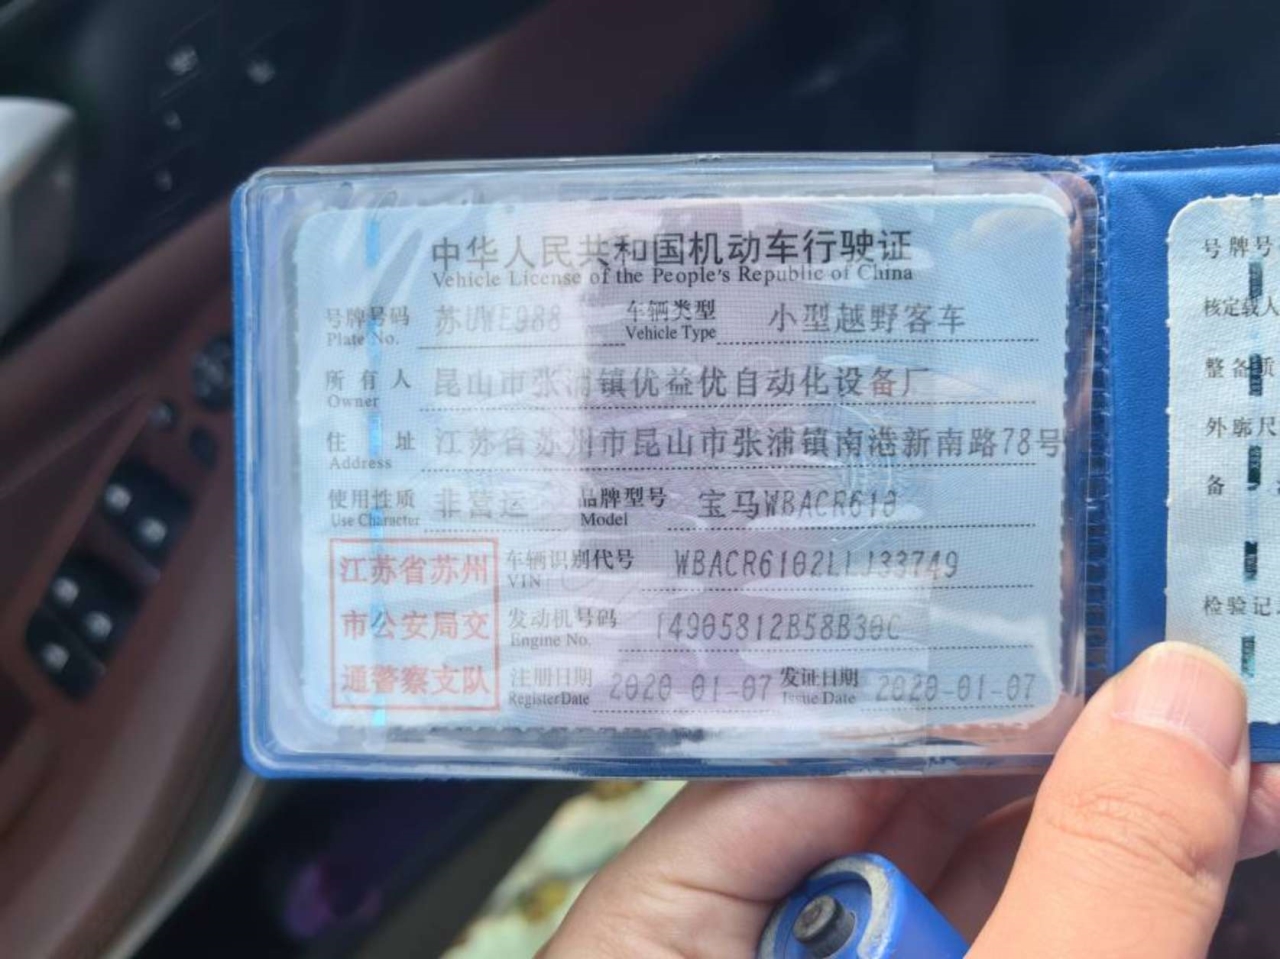 中华人民共和国机动车行驶证
Vehicle License of the People's Republic of China
号牌号码 苏UWE988 车辆类型 小型越野客车
Plate No. Vehicle Type
所有人 昆山市张浦镇优益优自动化设备厂
Owner
住址 江苏省苏州市昆山市张浦镇南港新南路78号
Address
使用性质 非营运 品牌型号 宝马WBACR610
Use Character Model
江苏省苏州
市公安局交
通警察支队
车辆识别代号 WBACR6102LLJ33749
VIN
发动机号码 14905812B58B30C
Engine No.
注册日期 2020-01-07 发证日期 2020-01-07
Register Date Issue Date
号牌号
核定载人
整备质
外廓尺
备
检验记